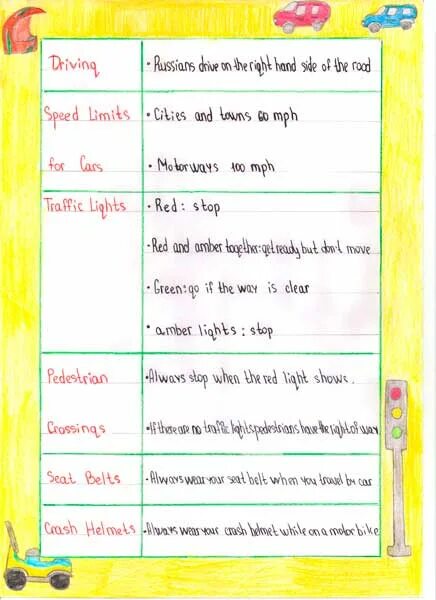 Driving
• Russians drive on the right hand side of the road
Speed Limits
• Cities and towns 60 mph
for Cars
• Motorways 100 mph
Traffic Lights
• Red: stop
• Red and amber together: get ready but don't move
• Green: go if the way is clear
• amber lights: stop
Pedestrian
• Always stop when the red light shows.
Crossings
• If there are no traffic lights pedestrians have the right of way
Seat Belts
• Always wear your seat belt when you travel by car
Crash Helmets
• Always wear your crash helmet while on a motor bike